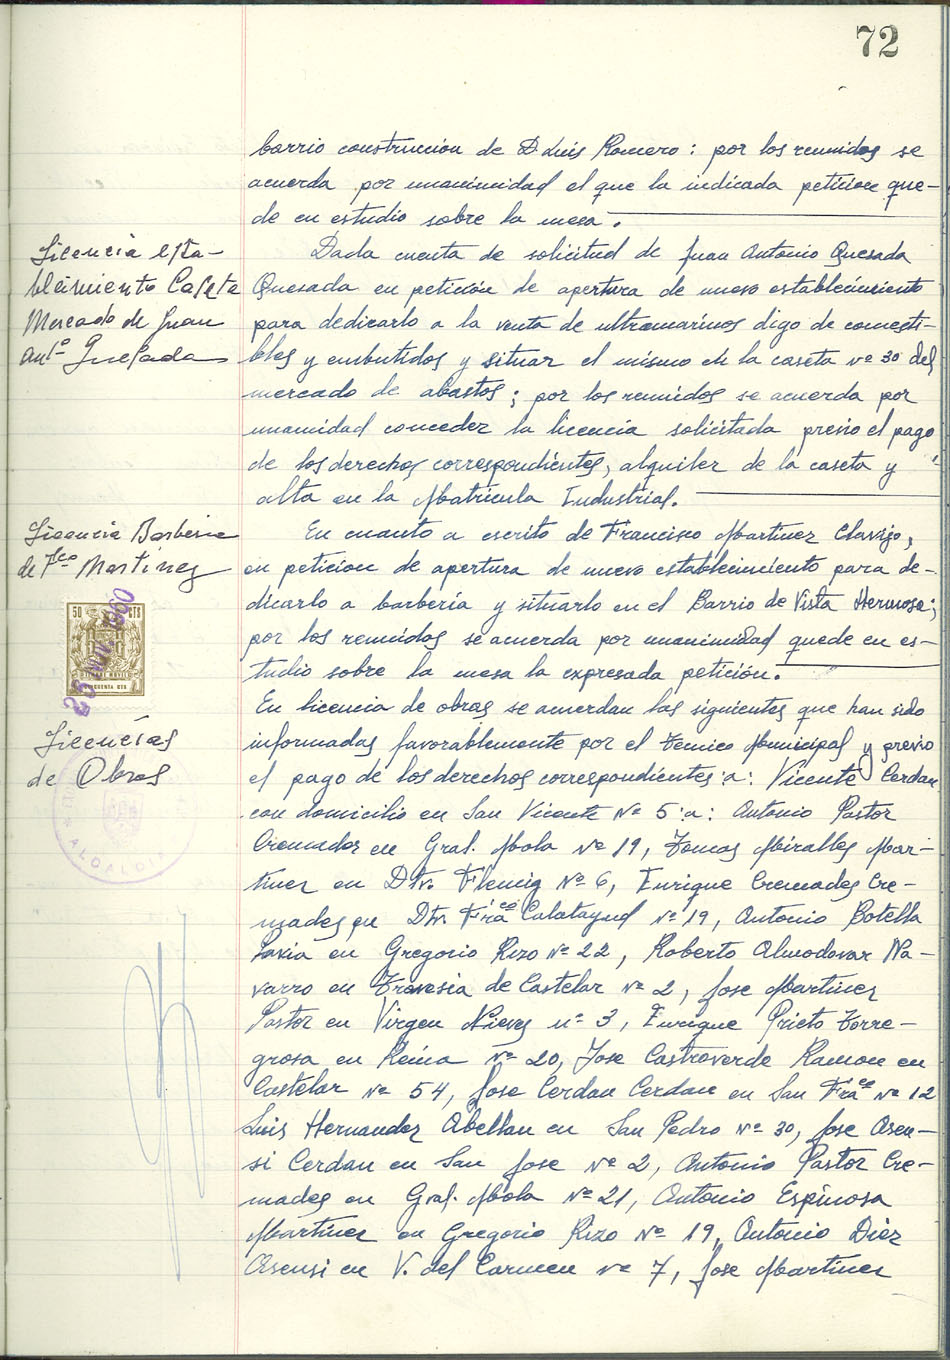 72
barrio construccion de D. Luis Romero: por los reunidos se
acuerda por unanimidad el que la indicada peticion que-
de en estudio sobre la mesa.
Licencia esta-
blecimiento Caseta
Mercado de Juan
Antº Quesada
Dada cuenta de solicitud de Juan Antonio Quesada
Quesada en petición de apertura de nuevo establecimiento
para dedicarlo a la venta de ultramarinos digo de comesti-
bles y embutidos y situar el mismo en la caseta nº 30 del
mercado de abastos; por los reunidos se acuerda por
unanimidad conceder la licencia solicitada previo el pago
de los derechos correspondientes, alquiler de la caseta y
alta en la Matrícula Industrial.
Licencia Barberia
de Fco Martínez
En cuanto a escrito de Francisco Martinez Clavijo,
en peticion de apertura de nuevo establecimiento para de-
dicarlo a barbería y situarlo en el Barrio de Vista Hermosa;
por los reunidos se acuerda por unanimidad quede en es-
tudio sobre la mesa la expresada petición.
50 CTS
25 NOV. 1960
Licencias
de Obras
ALCALDIA
En licencia de obras se acuerdan las siguientes que han sido
informadas favorablemente por el Tecnico Municipal y previo
el pago de los derechos correspondientes: a: Vicente Cerdan
con domicilio en San Vicente Nº 5: a: Antonio Pastor
Cremades en Gral. Mola Nº 19, Tomas Miralles Mar-
tinez en Dtr. Flemig Nº 6, Enrique Cremades Cre-
mades en Dtr. Fraco Calatayud Nº 19, Antonio Botella
Pavia en Gregorio Rizo Nº 22, Roberto Almodovar Na-
varro en Travesia de Castelar Nº 2, Jose Martinez
Pastor en Virgen Nieves nº 3, Enrique Prieto Torre-
grosa en Reina Nº 20, Jose Castroverde Ramon en
Castelar Nº 54, Jose Cerdan Cerdan en San Fraco Nº 12
Luis Hernandez Abellan en San Pedro Nº 30, Jose Asen-
si Cerdan en San Jose Nº 2, Antonio Pastor Cre-
mades en Gral. Mola Nº 21, Antonio Espinosa
Martinez en Gregorio Rizo Nº 19, Antonio Diez
Asensi en V. del Carmen Nº 7, Jose Martinez